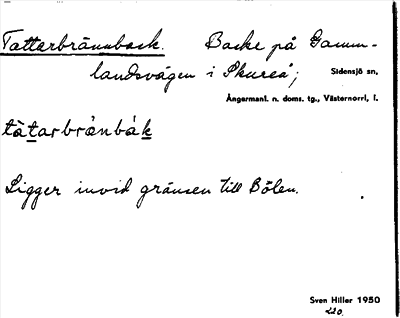 Tattarbrännback. Backe på Gamm-
landsvägen i Skureå; Sidensjö sn,
Ångermanl. n. doms. tg., Västernorrl, l.
tàtarbrànbák
Ligger invid gränsen till Bölen.
Sven Hiller 1950
220.